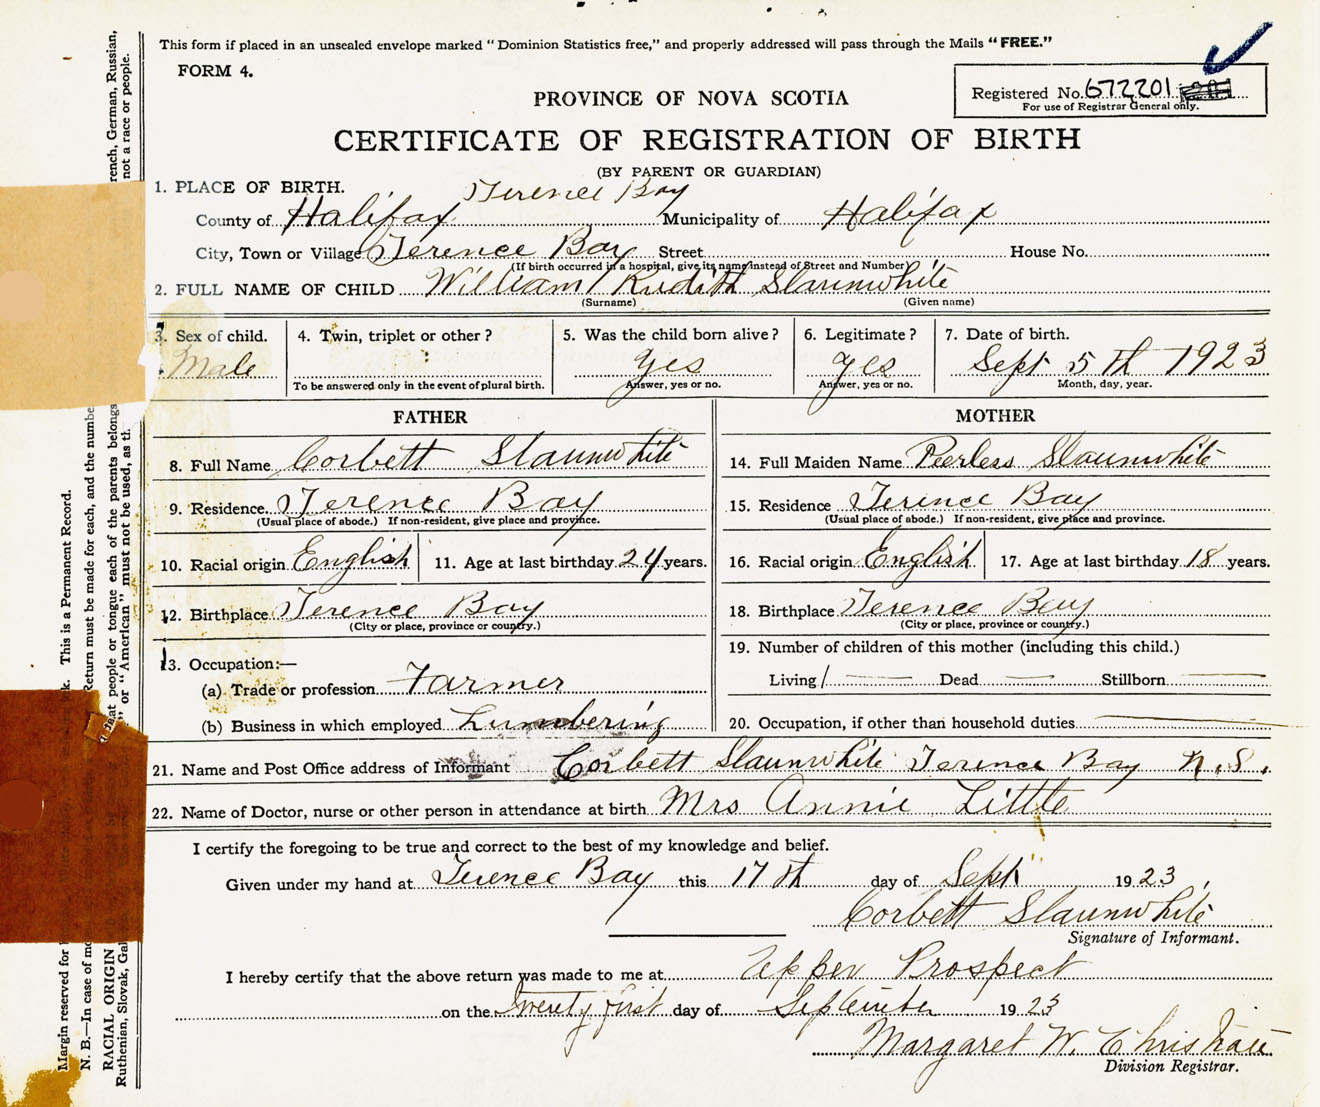 This form if placed in an unsealed envelope marked "Dominion Statistics free," and properly addressed will pass through the Mails "FREE."
FORM 4.
Registered No. 672201
For use of Registrar General only.
PROVINCE OF NOVA SCOTIA
CERTIFICATE OF REGISTRATION OF BIRTH
(BY PARENT OR GUARDIAN)
1. PLACE OF BIRTH. Terence Bay
County of Halifax Municipality of Halifax
City, Town or Village Terence Bay Street House No.
(If birth occurred in a hospital, give its name instead of Street and Number)
2. FULL NAME OF CHILD William Slaunwhite
(Surname) (Given name)
3. Sex of child. 4. Twin, triplet or other? 5. Was the child born alive? 6. Legitimate? 7. Date of birth.
Male Yes Yes Sept 5th 1923
To be answered only in the event of plural birth. Answer, yes or no. Answer, yes or no. Month, day, year.
FATHER
8. Full Name Corbett Slaunwhite
9. Residence Terence Bay
(Usual place of abode.) If non-resident, give place and province.
10. Racial origin English 11. Age at last birthday 24 years.
12. Birthplace Terence Bay
(City or place, province or country.)
13. Occupation:—
(a) Trade or profession Farmer
(b) Business in which employed Lumbering
MOTHER
14. Full Maiden Name Peerless Slaunwhite
15. Residence Terince Bay
(Usual place of abode.) If non-resident, give place and province.
16. Racial origin English 17. Age at last birthday 18 years.
18. Birthplace Terence Bay
(City or place, province or country.)
19. Number of children of this mother (including this child.)
Living 1 Dead Stillborn
20. Occupation, if other than household duties
21. Name and Post Office address of Informant Corbett Slaunwhite Terence Bay N.S.
22. Name of Doctor, nurse or other person in attendance at birth Mrs Annie Little
I certify the foregoing to be true and correct to the best of my knowledge and belief.
Given under my hand at Terence Bay this 17th day of Sept 1923
Corbett Slaunwhite
Signature of Informant.
I hereby certify that the above return was made to me at Upper Prospect
on the Twenty first day of September 1923
Margaret W. Christian
Division Registrar.
Margin reserved for This is a Permanent Record.
N. B.—In case of Return must be made for each, and the
RACIAL ORIGIN people or tongue each of the parents belongs
Ruthenian, Slovak, or "American" must not be used, as
French, German, Russian,
not a race or people.